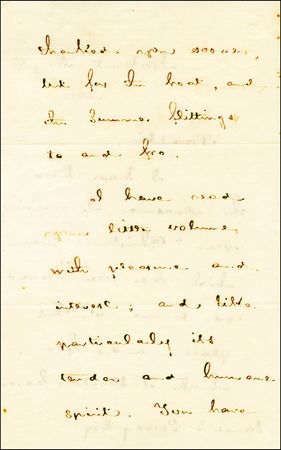 thanked you sooner,
but for the heat, and
the Summer flittings
to and fro.
I have read
your little volume,
with pleasure and
interest; and, like
particularly its
tender and humane
spirit. You have